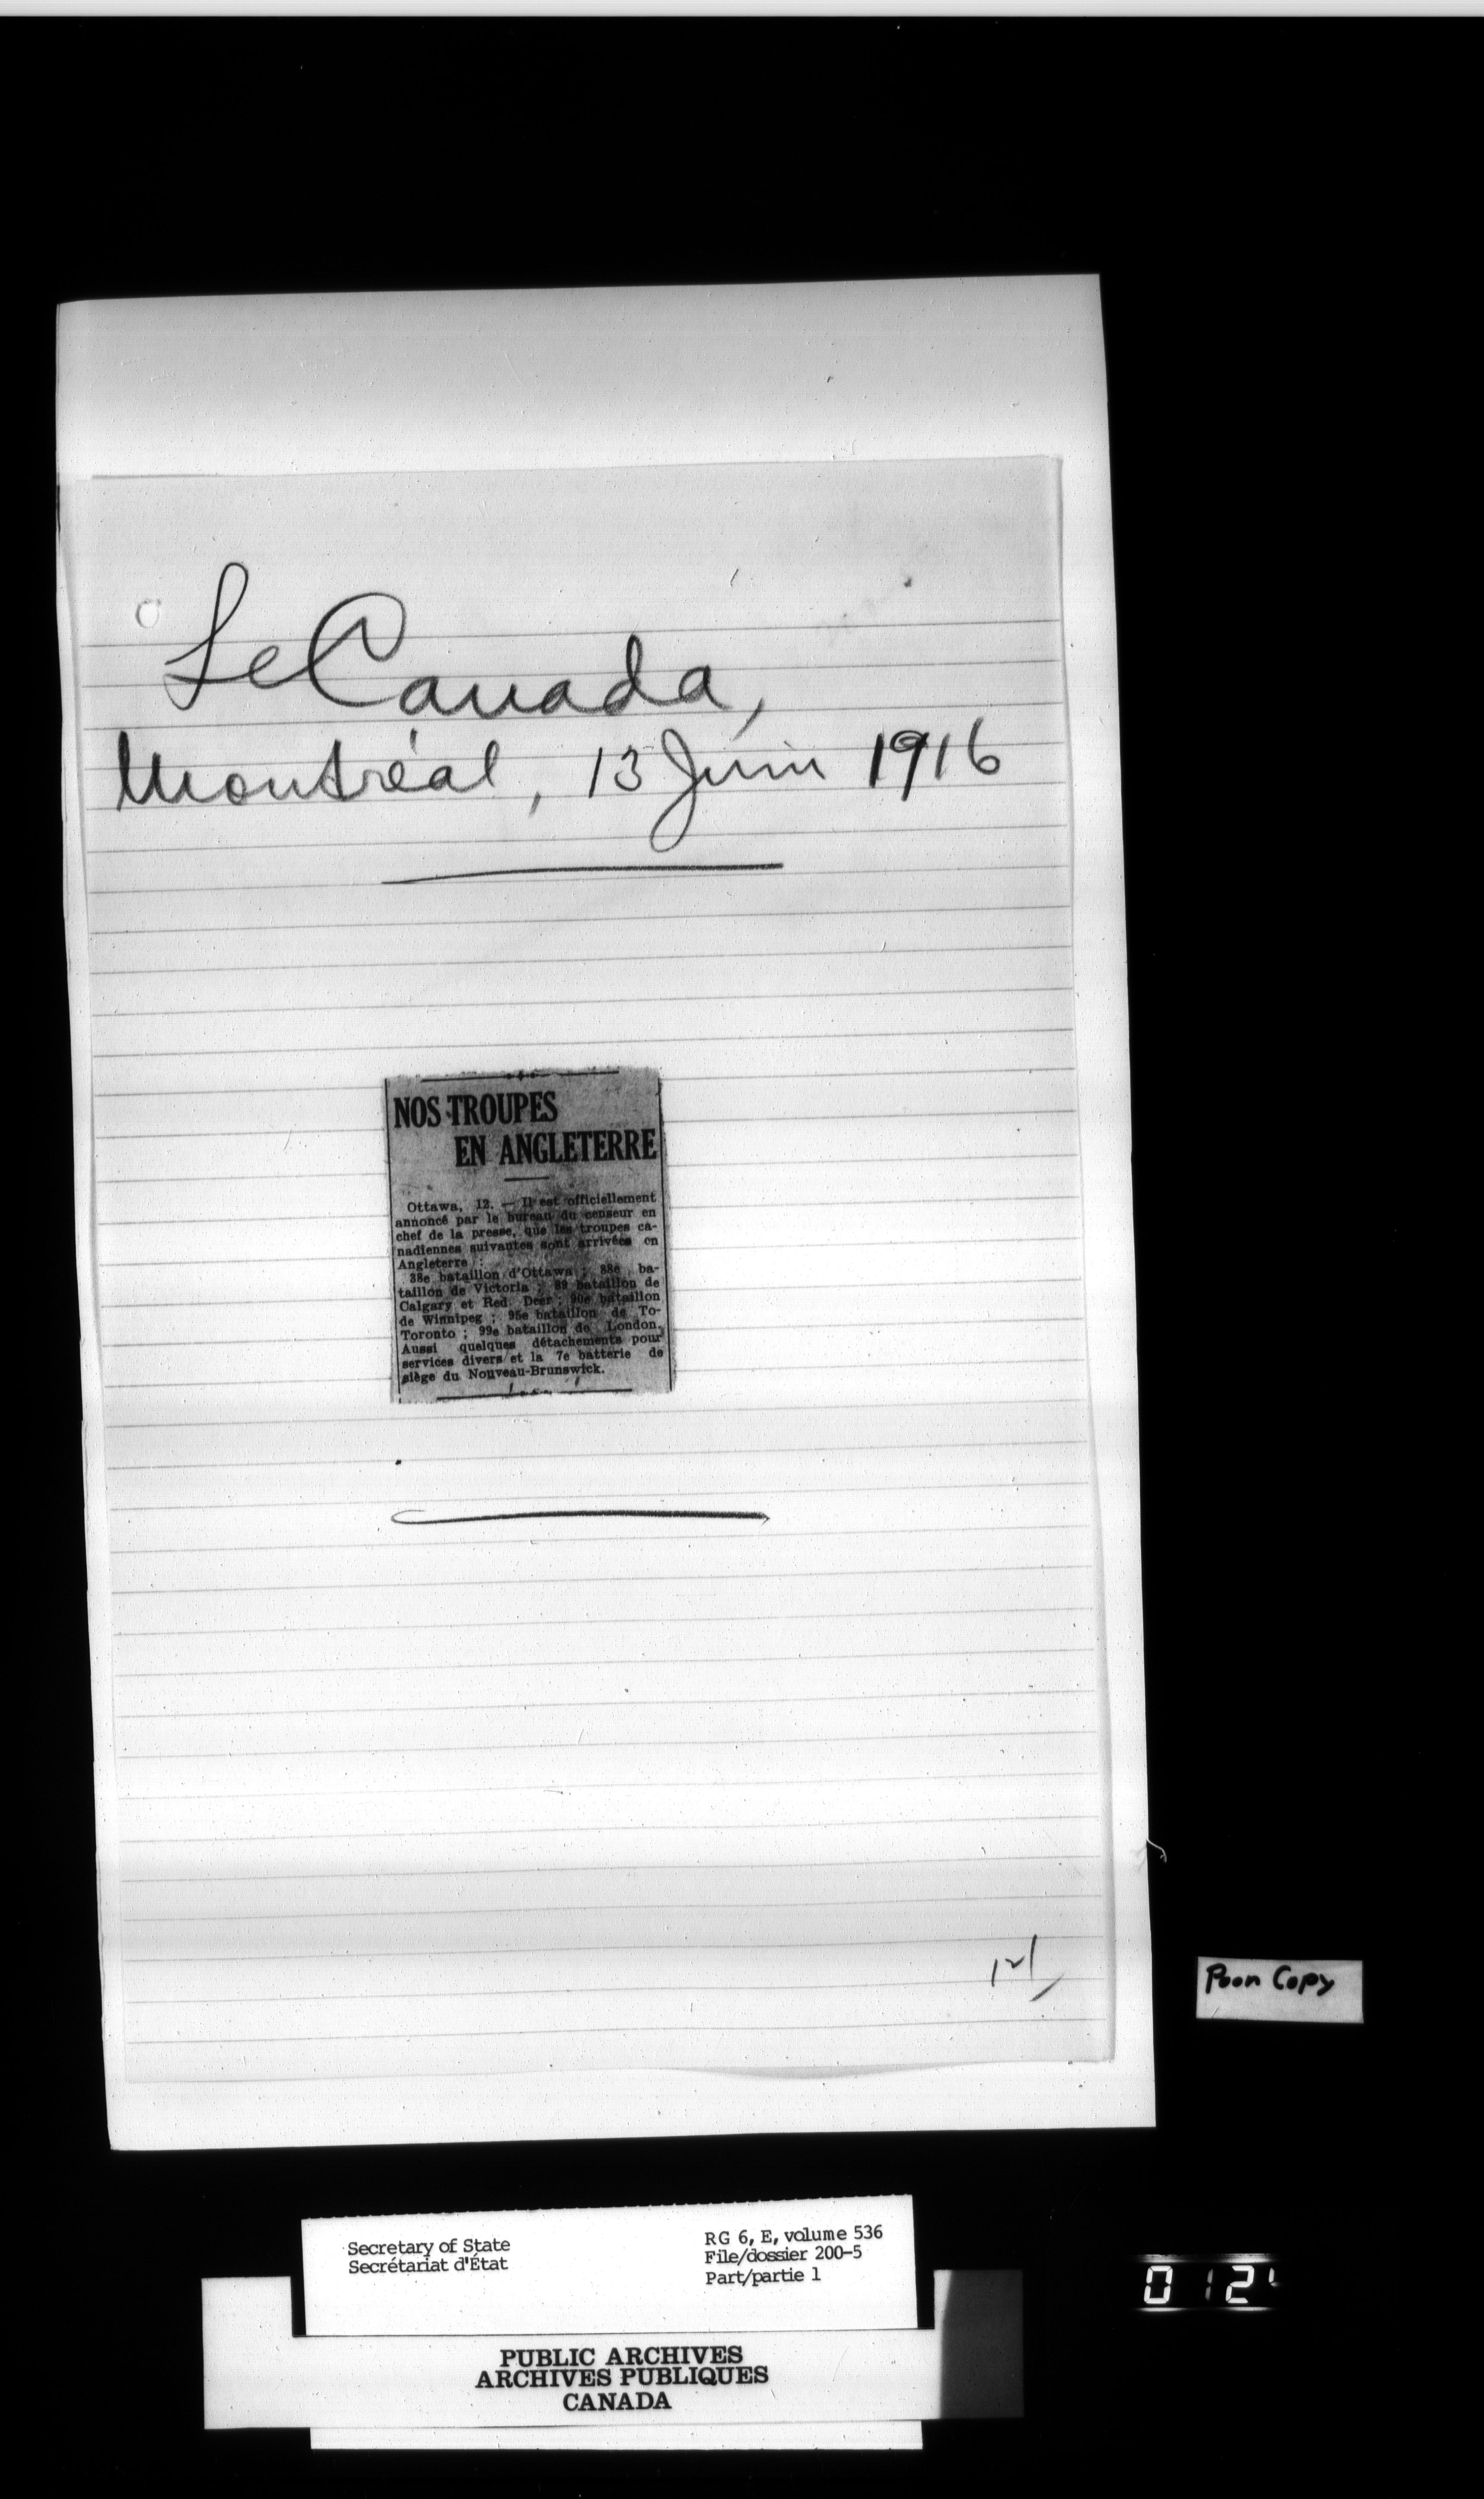 Le Canada,
Montréal, 13 Juin 1916
NOS TROUPES
EN ANGLETERRE
Ottawa, 12. — Il est officiellement
annoncé par le bureau du censeur en
chef de la presse, que les troupes ca-
nadiennes suivantes sont arrivées en
Angleterre :
38e bataillon d'Ottawa ; 88e ba-
taillon de Victoria ; 89 bataillon de
Calgary et Red Deer ; 90e bataillon
de Winnipeg ; 95e bataillon de To-
Toronto ; 99e bataillon de London.
Aussi quelques détachements pour
services divers et la 7e batterie de
siège du Nouveau-Brunswick.
Poor Copy
Secretary of State
Secrétariat d'État
RG 6, E, volume 536
File/dossier 200-5
Part/partie 1
PUBLIC ARCHIVES
ARCHIVES PUBLIQUES
CANADA